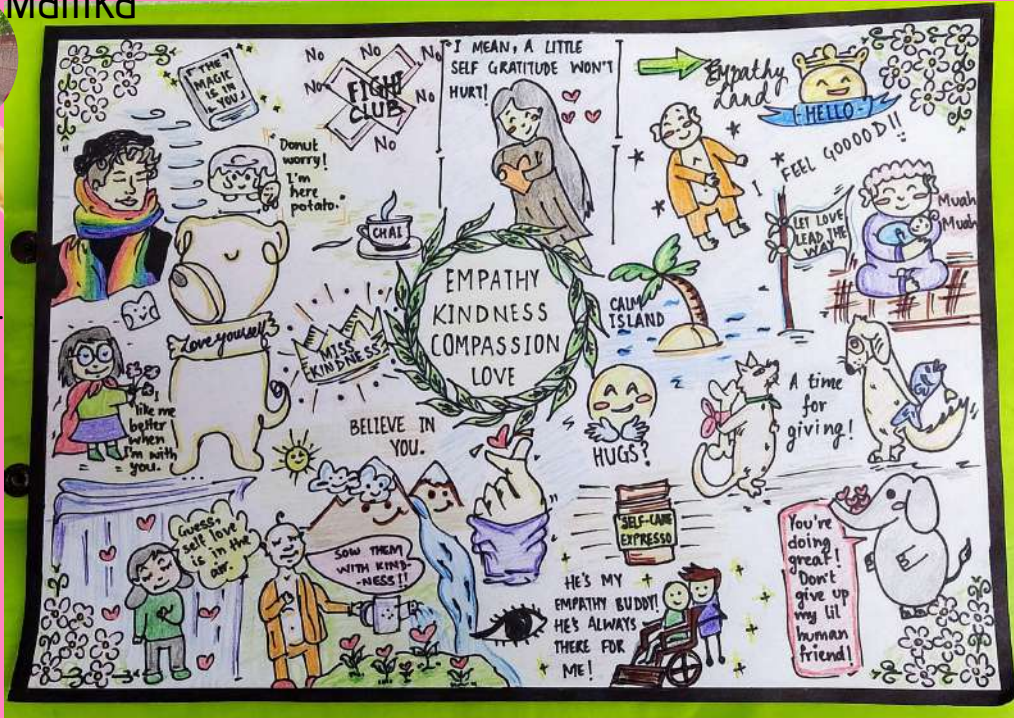 Mallika
THE
MAGIC
IS IN
YOU
No
No
No
No
No
No
FIGHT
CLUB
"I MEAN, A LITTLE
SELF GRATITUDE WON'T
HURT!
Empathy
Land
-HELLO-
I FEEL GOOOOD!!
"Donut
worry!
I'm
here
potato."
CHAI
LET LOVE
LEAD THE
WAY
Muah
Muah
EMPATHY
KINDNESS
COMPASSION
LOVE
CALM
ISLAND
Love yourself
MISS
KINDNESS
I
like me
better
when
I'm with
you.
BELIEVE IN
YOU.
HUGS?
A time
for
giving!
Guess,
self love
is in the
air.
SOW THEM
WITH KIND-
-NESS!!
SELF-CARE
EXPRESSO
HE'S MY
EMPATHY BUDDY!
HE'S ALWAYS
THERE FOR
ME!
You're
doing
great!
Don't
give up
my lil
human
friend!